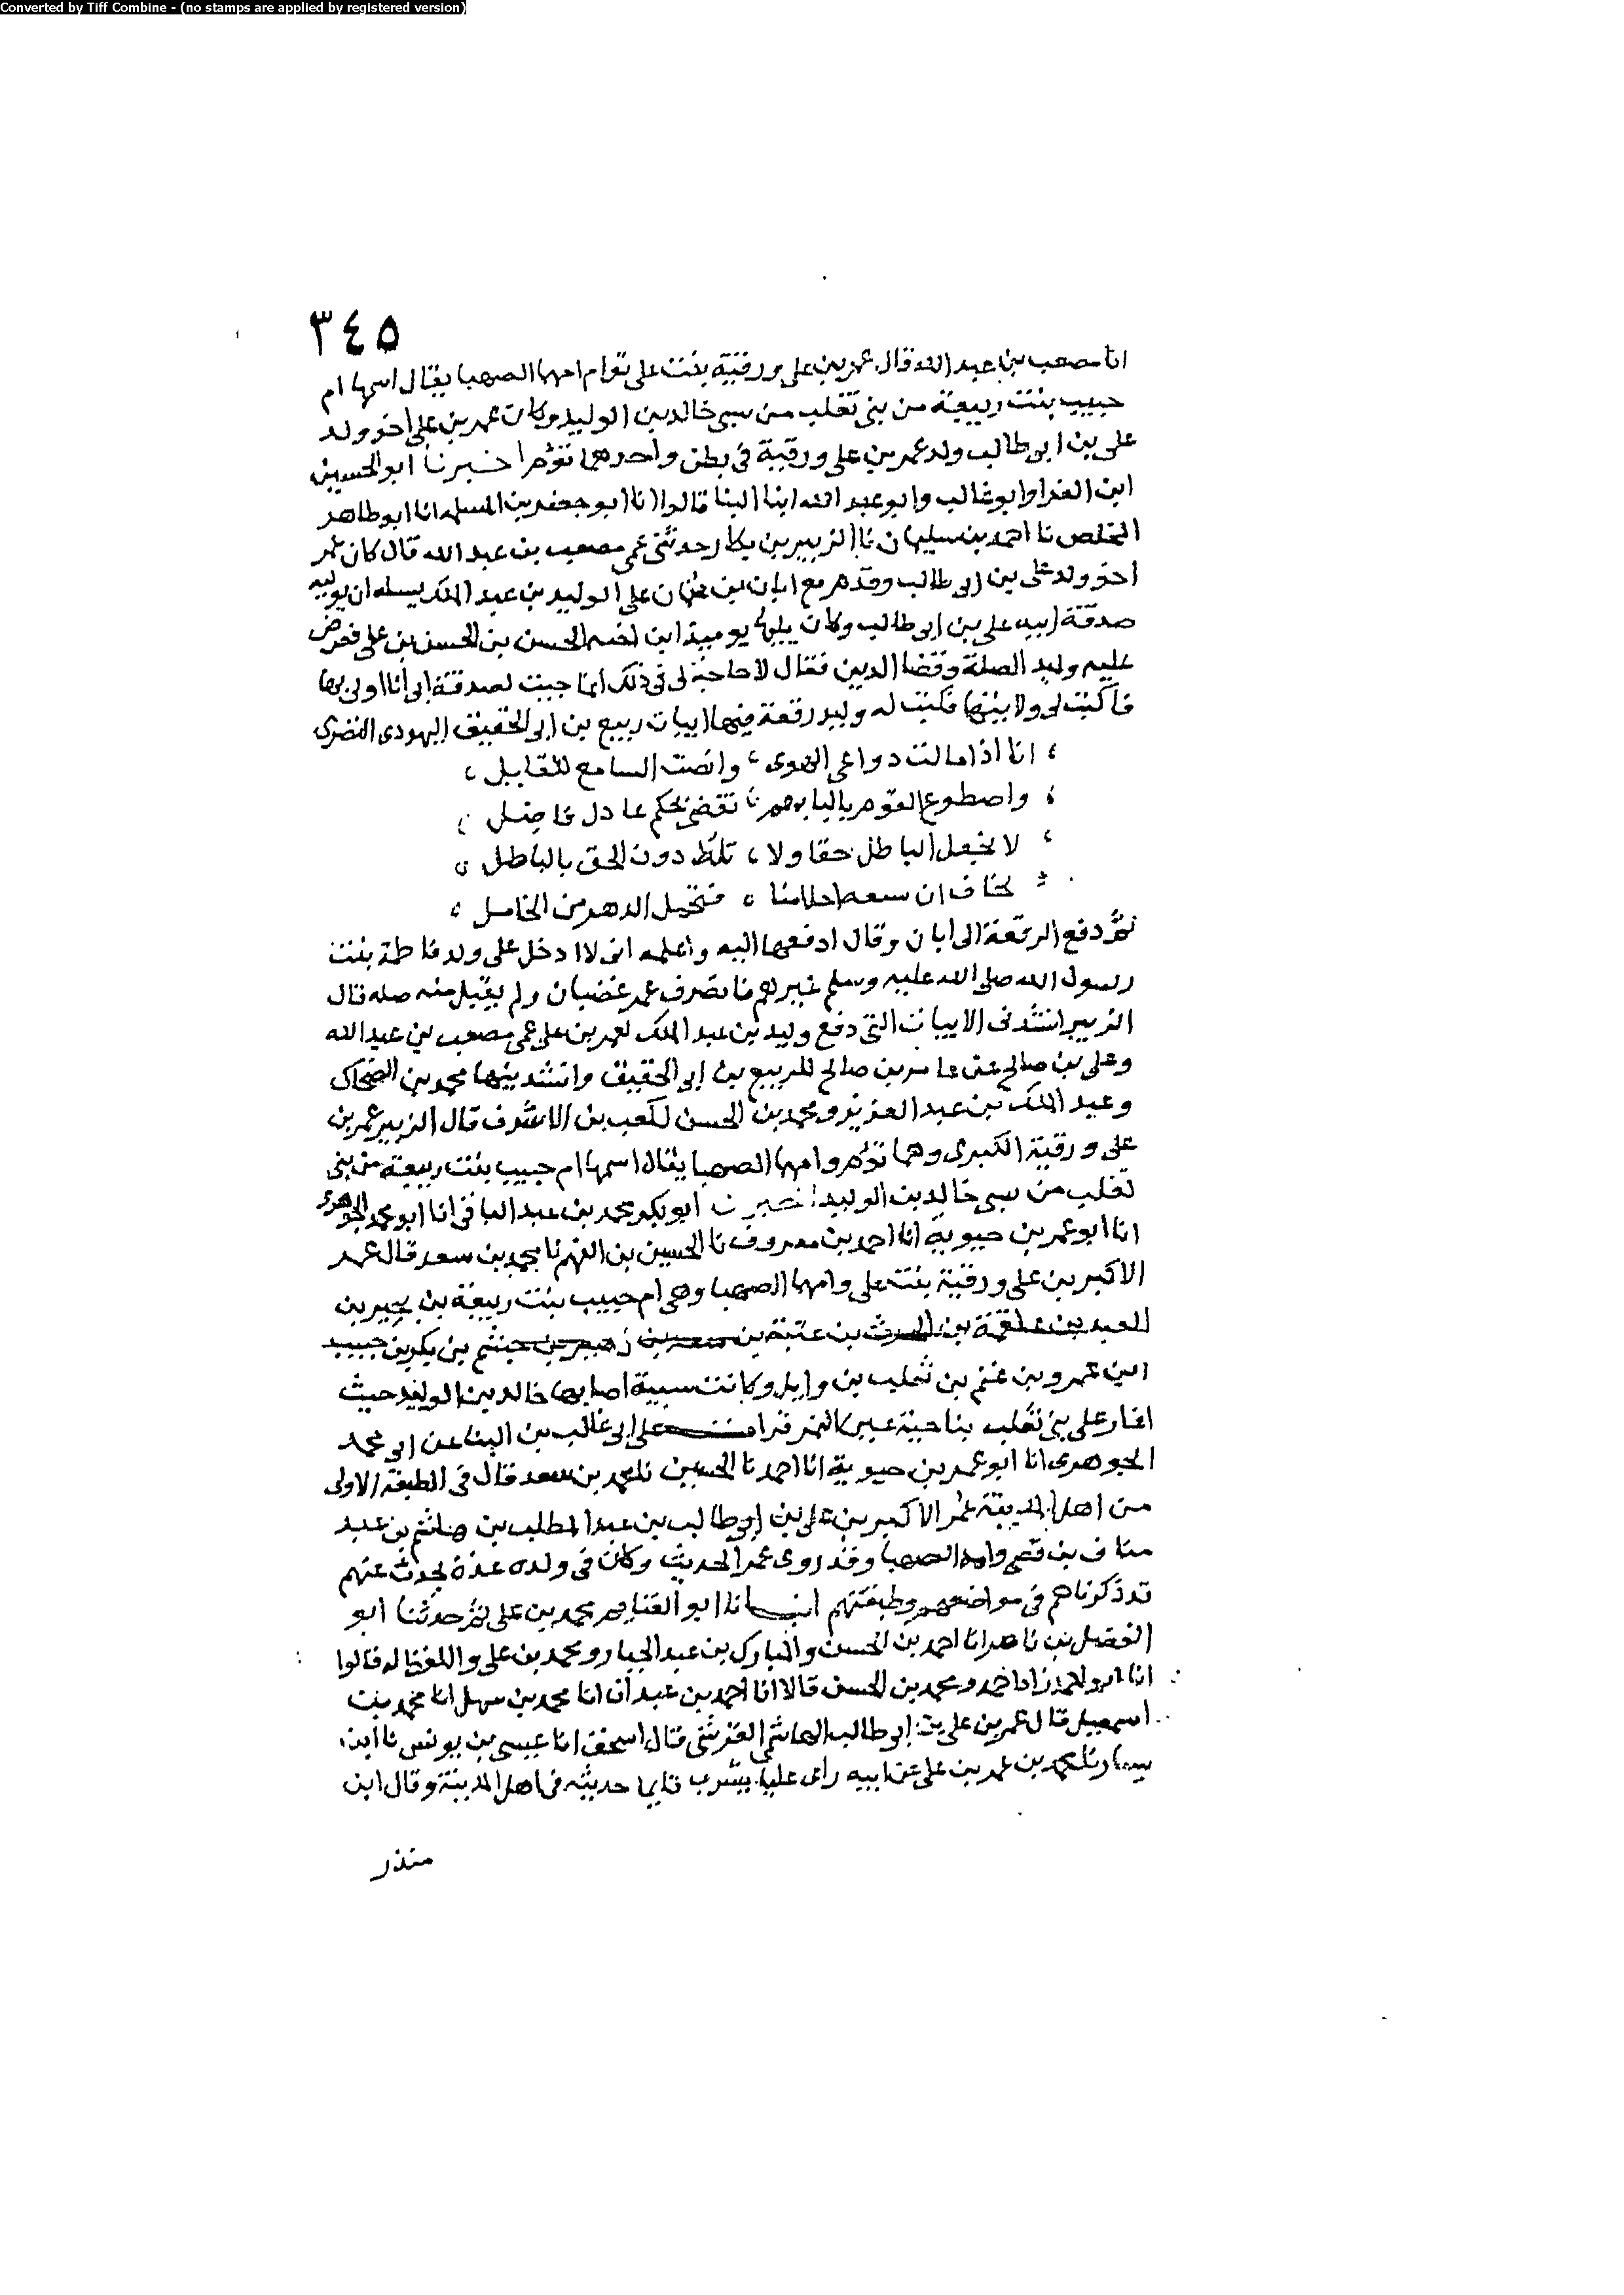 Converted by Tiff Combine - (no stamps are applied by registered version)
٣٤٥
انا مصعب بن عبد الله قال عمر بن على ورقية بنت على توام امهما الصهبا يقال اسمها ام
حبيب بنت ربيعة من بنى تغلب من سبى خالد بن الوليد وكان عمر بن على اخر ولد
على بن ابى طالب ولد عمر بن على ورقية فى بطن واحد هما توم اخبرنا ابو الحسين
ابن الفرا وابو غالب وابو عبد الله ابنا البنا قالوا انا ابو جعفر بن المسلمه انا ابو طاهر
المخلص نا احمد بن سليمان نا الزبير بن بكار حدثنى عمى مصعب بن عبد الله قال كان عمر
اخر ولد على بن ابى طالب وقدم مع ابان بن عثمان على الوليد بن عبد الملك يسله ان يوليه
صدقة ابيه على بن ابى طالب وكان يليها يوميذ ابن اخيه الحسن بن الحسن بن على فعرض
عليه وليد الصلة وقضا الدين فقال لا حاجة لى فى ذلك انما جيت لصدقة ابى انا اولى بها
فاكتب لى ولايتها فكتب له وليد رقعة فيها ابيات ربيع بن ابى الحقيق اليهودى النضرى
انا اذا مالت دواعى الهوى وانصت السامع للقايل
واصطرع القوم بالبابهم نقضى بحكم عادل فاصل
لا نجعل الباطل حقا ولا نلط دون الحق بالباطل
نخاف ان سفه احلامنا فنخمل الدهر من الخامل
ثم دفع الرقعة الى ابان وقال ادفعها اليه واعلمه انى لا ادخل على ولد فاطمة بنت
رسول الله صلى الله عليه وسلم غيرهم فانصرف عمر غضبان ولم يقبل منه صله قال
الزبير انشدنى الابيات التى دفع وليد بن عبد الملك لعمر بن على عمى مصعب بن عبد الله
وعلى بن صالح عن عامر بن صالح للربيع بن ابى الحقيق وانشدنيها محمد بن الضحاك
وعبد الملك بن عبد العزيز ومحمد بن الحسن لكعب بن الاشرف قال الزبير عمر بن
على ورقية الكبرى وهما توم وامهما الصهبا يقال اسمها ام حبيب بنت ربيعة من بنى
تغلب من سبى خالد بن الوليد اخبرنا ابو بكر محمد بن عبد الباقى انا ابو محمد الجوهرى
انا ابو عمر بن حيوية انا احمد بن معروف نا الحسين بن الفهم نا محمد بن سعد قال عمر
الاكبر بن على ورقية بنت على وامهما الصهبا وهى ام حبيب بنت ربيعة بن بجير بن
العبد بن علقمة بن الحرث بن عتبة بن سعد بن زهير بن جشم بن بكر بن حبيب
ابن عمرو بن غنم بن تغلب بن وايل وكانت سبية اصابها خالد بن الوليد حيث
اغار على بنى تغلب بناحية عين التمر قرات على ابى غالب بن البنا عن ابى محمد
الجوهرى انا ابو عمر بن حيوية انا احمد نا الحسين نا محمد بن سعد قال فى الطبقة الاولى
من اهل المدينة عمر الاكبر بن على بن ابى طالب بن عبد المطلب بن هاشم بن عبد
مناف بن قصى وامه الصهبا وقد روى عمر الحديث وكان فى ولده عدة يحدث عنهم
قد ذكرناهم فى مواضعهم وطبقتهم انبانا ابو الغنايم محمد بن على ثم حدثنا ابو
الفضل بن ناصر انا احمد بن الحسن والمبارك بن عبد الجبار ومحمد بن على واللفظ له قالوا
انا ابو احمد زاد احمد ومحمد بن الحسن قالا انا احمد بن عبدان انا محمد بن سهل انا محمد بن
اسمعيل قال عمر بن على بن ابى طالب الهاشمى القرشى قال اسحق انا عيسى بن يونس نا ابن
يسار نا محمد بن عمر بن على عن ابيه راى عليا يشرب قايما حديثه فى اهل المدينة وقال ابن
منذر